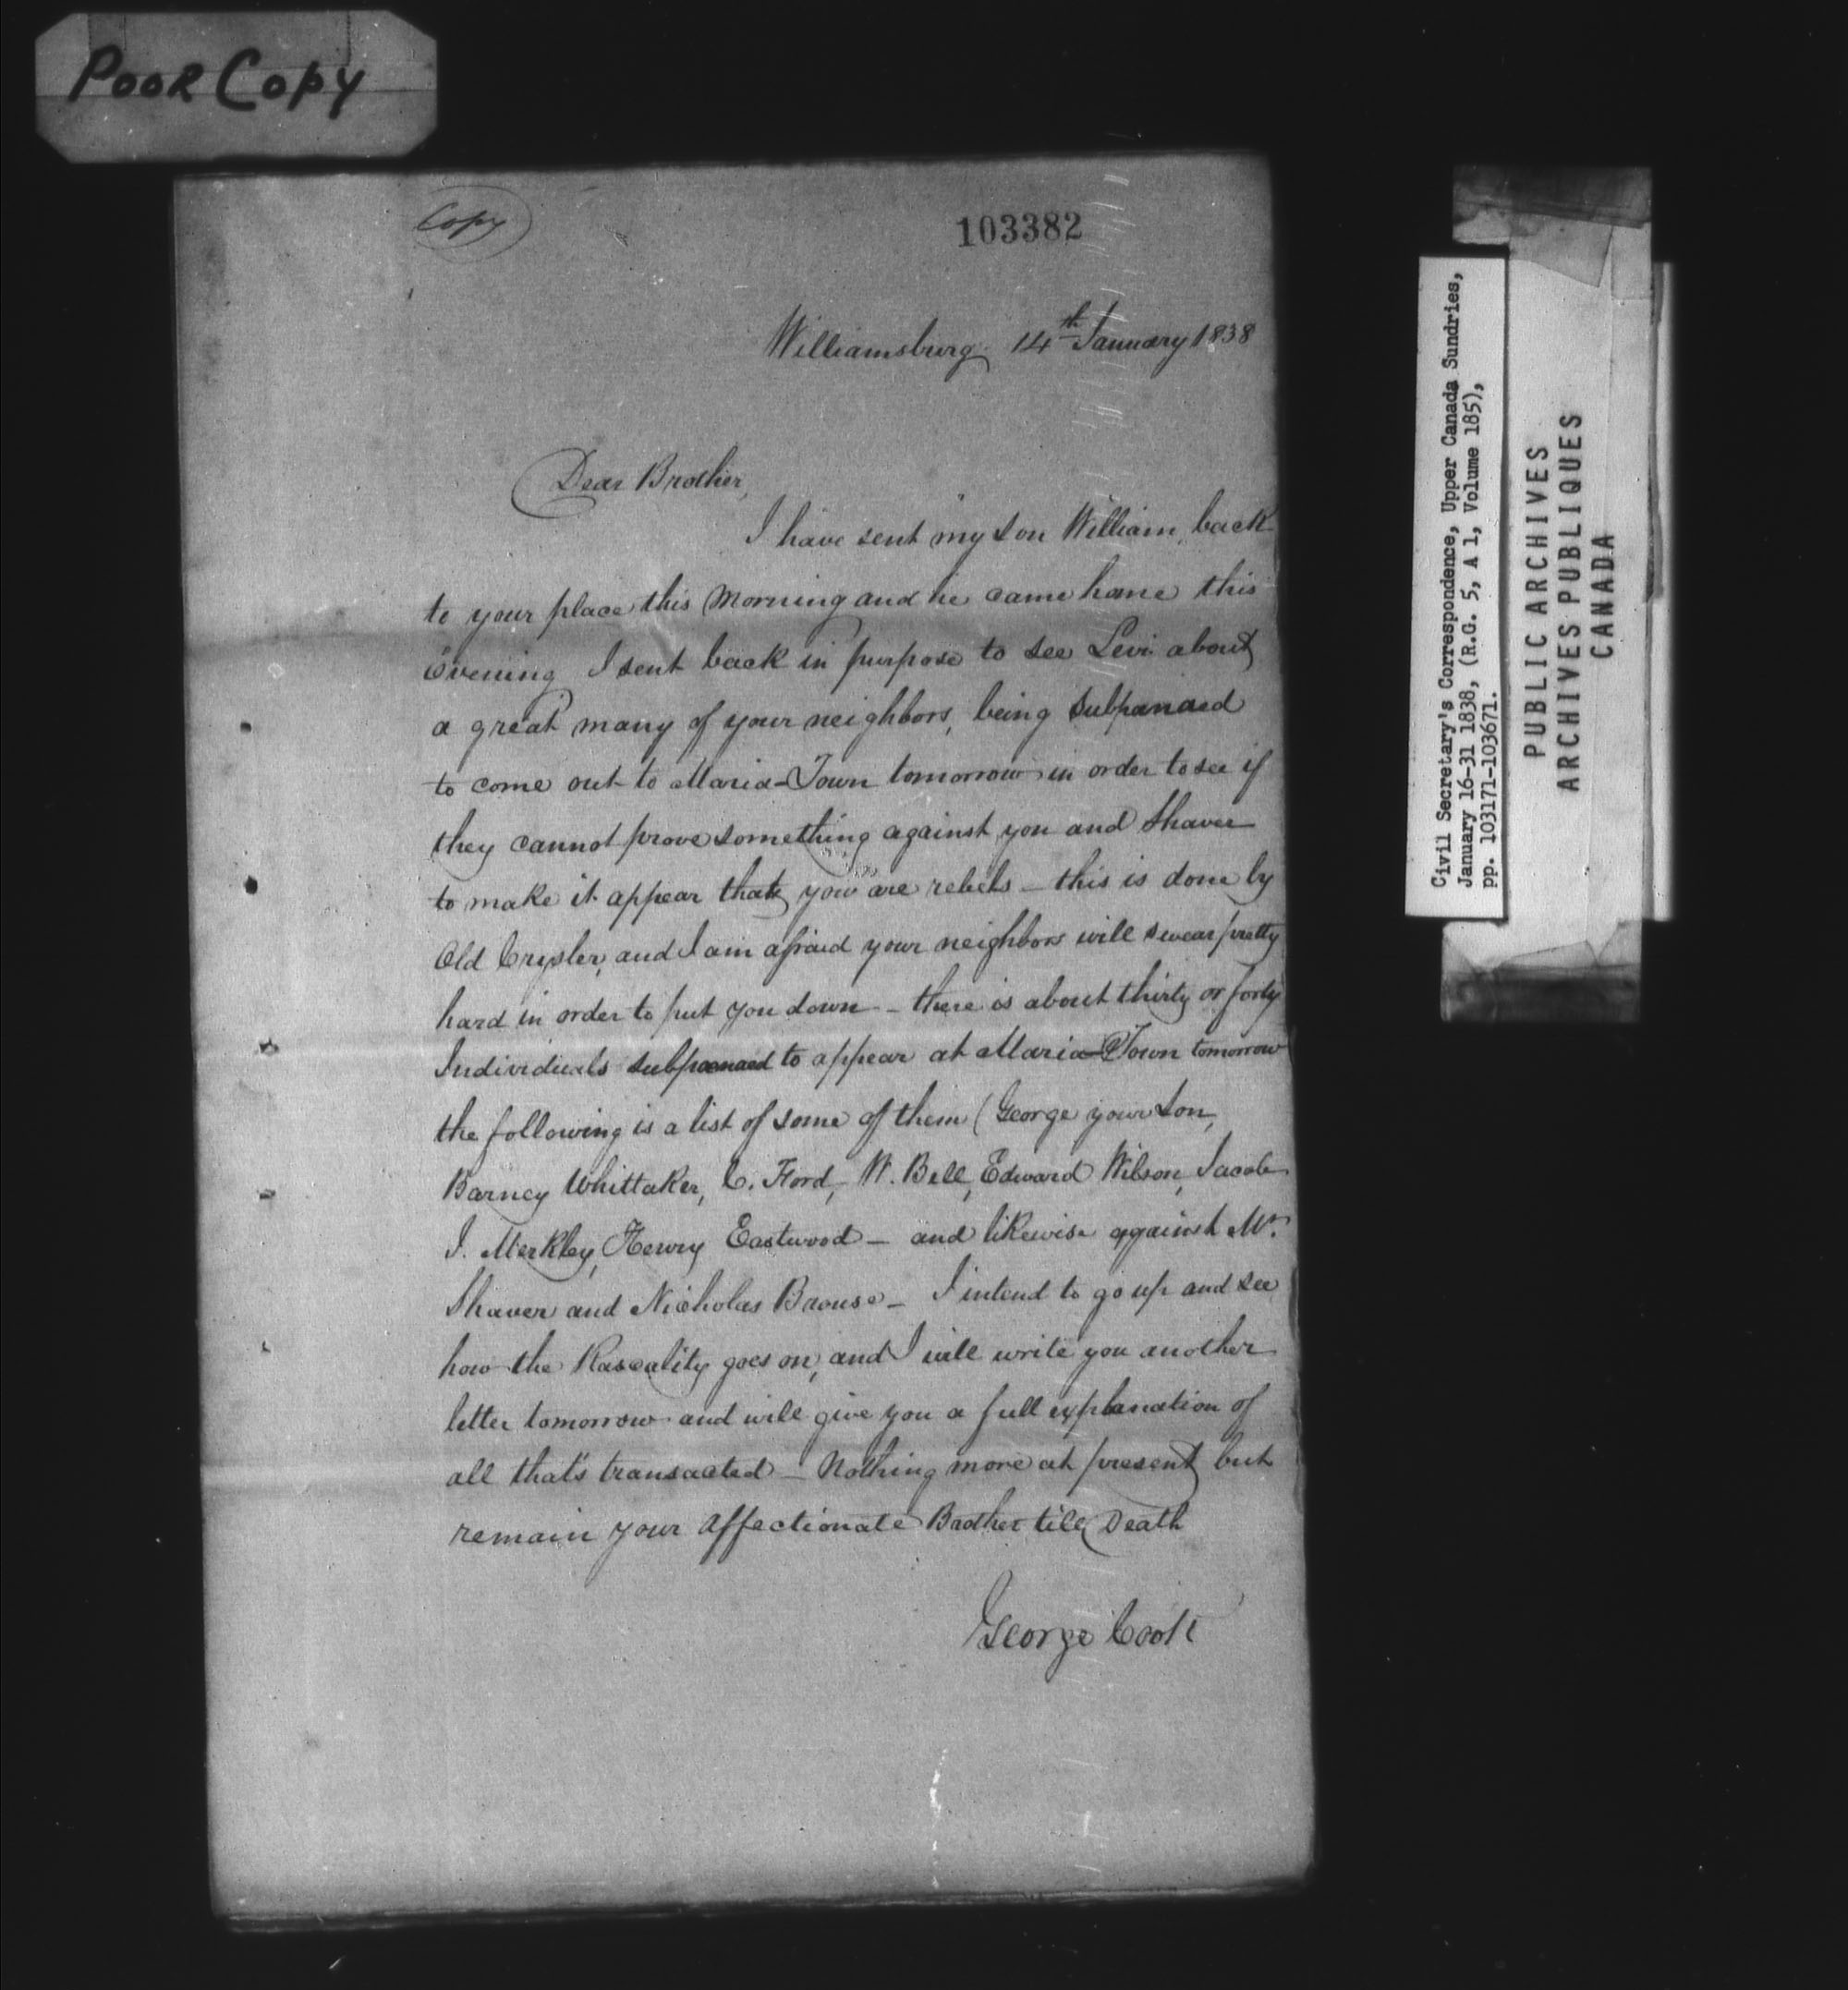 POOR COPY
Copy
103382
Williamsburg 14th January 1838
Dear Brother,
I have sent my son William, back
to your place this Morning and he came home this
Evening I sent back in purpose to see Levi about
a great many of your neighbors, being subpanaed
to come out to Maria-Town tomorrow in order to see if
they cannot prove something against you and Shaver
to make it appear that you are rebels – this is done by
Old Crysler, and I am afraid your neighbors will swear pretty
hard in order to put you down – there is about thirty or forty
Individuals subpoenaed to appear at Maria-Town tomorrow
the following is a list of some of them (George your son,
Barney Whittaker, C. Ford, W. Bell, Edward Wilson, Jacob
I. Merkley, Henry Eastwood – and likewise against Mr.
Shaver and Nicholas Brouse – I intend to go up and see
how the Rascality goes on, and I will write you another
letter tomorrow and will give you a full explanation of
all that's transacted – Nothing more at present but
remain your affectionate Brother till Death
George Cook
Civil Secretary's Correspondence, Upper Canada Sundries,
January 16-31 1838, (R.G. 5, A 1, Volume 185),
pp. 103171-103671.
PUBLIC ARCHIVES
ARCHIVES PUBLIQUES
CANADA